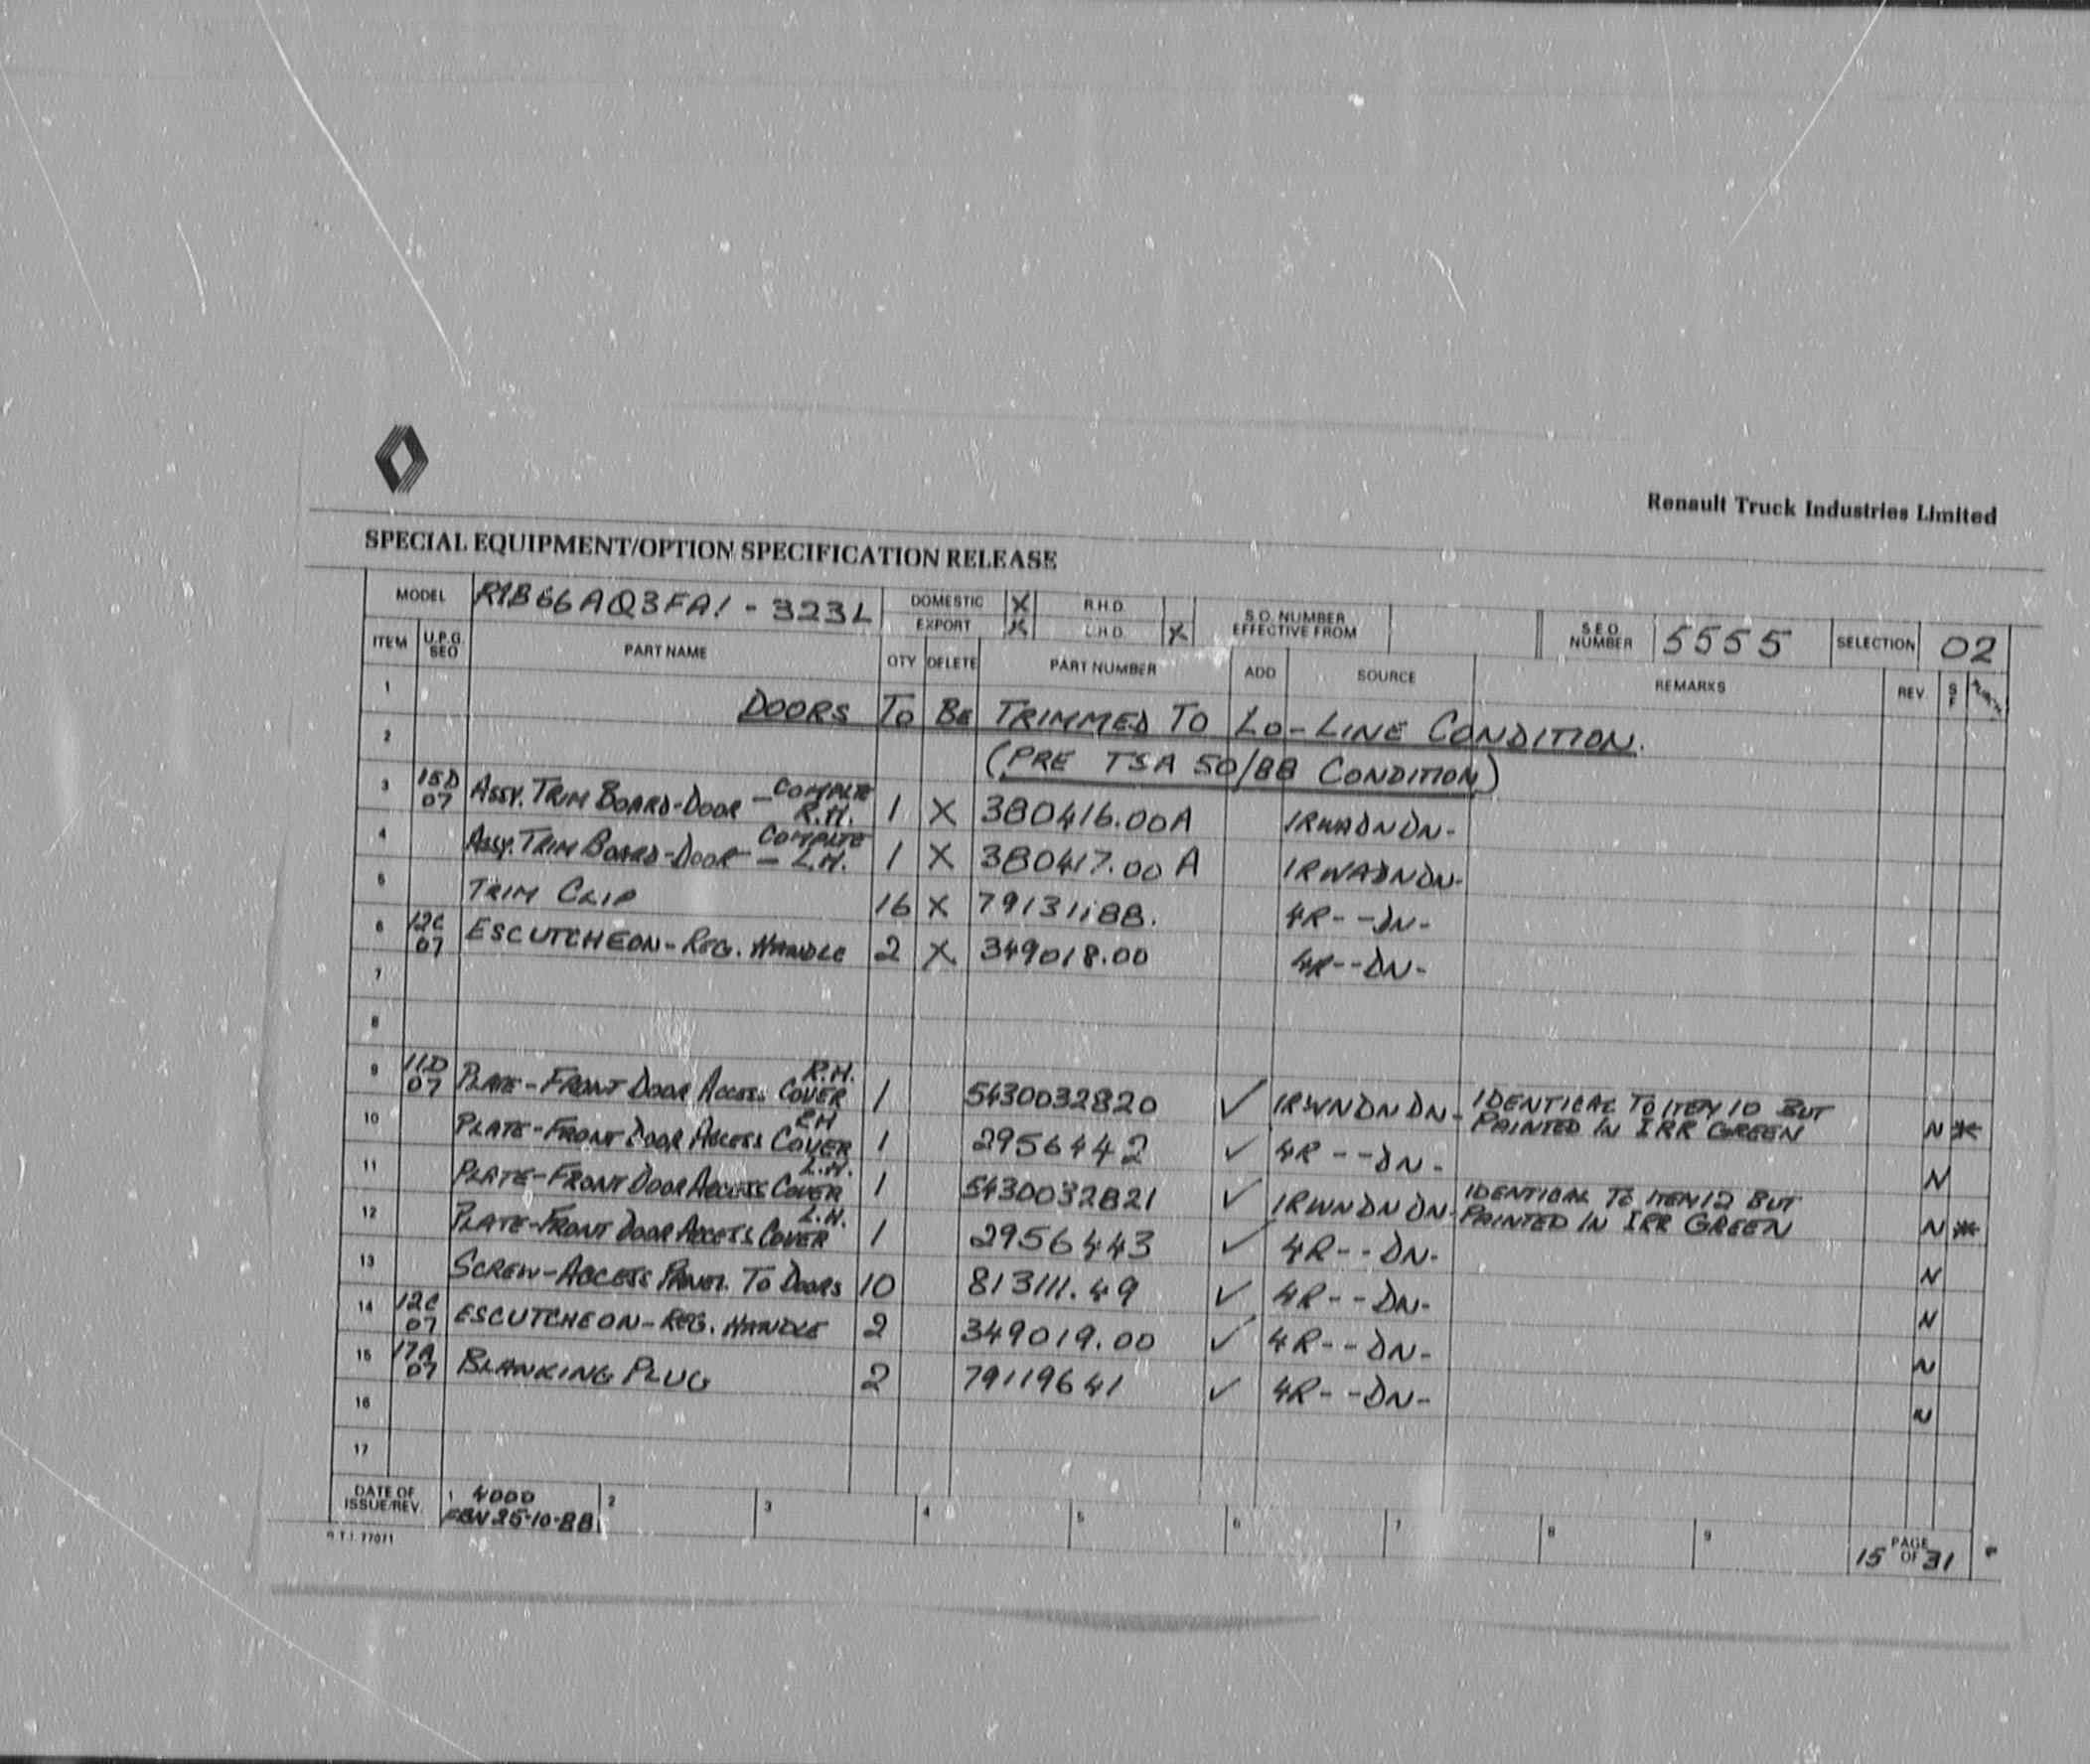 Renault Truck Industries Limited
SPECIAL EQUIPMENT/OPTION SPECIFICATION RELEASE
MODEL R1B66AQ3FA1 - 323L DOMESTIC X R.H.D. S.O. NUMBER EFFECTIVE FROM S.E.O. NUMBER 5555 SELECTION 02
EXPORT X L.H.D. X
ITEM U.P.G. SEQ PART NAME QTY DELETE PART NUMBER ADD SOURCE REMARKS REV. S F
1 DOORS TO BE TRIMMED TO LO-LINE CONDITION.
2 (PRE TSA 50/88 CONDITION)
3 15D 07 ASSY. TRIM BOARD-DOOR - COMPLTE R.H. 1 X 380416.00A 1RWADNDN-
4 ASSY. TRIM BOARD-DOOR - COMPLTE L.H. 1 X 380417.00A 1RWADNDN-
5 TRIM CLIP 16 X 79131188. 4R--DN-
6 12C 07 ESCUTCHEON-REG. HANDLE 2 X 349018.00 4R--DN-
7
8
9 11D 07 PLATE-FRONT DOOR ACCESS COVER R.H. 1 5430032820 ✓ 1RWNDNDN- IDENTICAL TO ITEM 10 BUT PAINTED IN IRR GREEN N *
10 PLATE-FRONT DOOR ACCESS COVER RH 1 2956442 ✓ 4R--DN- N
11 PLATE-FRONT DOOR ACCESS COVER L.H. 1 5430032821 ✓ 1RWNDNDN- IDENTICAL TO ITEM 12 BUT PAINTED IN IRR GREEN N *
12 PLATE-FRONT DOOR ACCESS COVER L.H. 1 2956443 ✓ 4R--DN- N
13 SCREW-ACCESS PANEL TO DOORS 10 813111.49 ✓ 4R--DN- N
14 12C 07 ESCUTCHEON-REG. HANDLE 2 349019.00 ✓ 4R--DN- N
15 17A 07 BLANKING PLUG 2 79119641 ✓ 4R--DN- N
16
17
DATE OF ISSUE/REV. 1 4000 FBN 25-10-88 2 3 4 5 6 7 8 9 15 PAGE OF 31
R.T.I. 77071